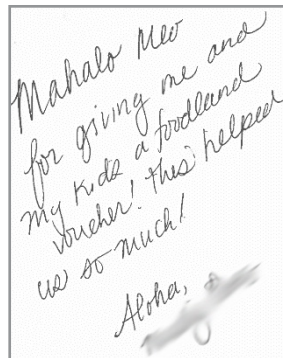 Mahalo MEO
for giving me and
my kids a foodland
voucher! this helped
us so much!
Aloha,